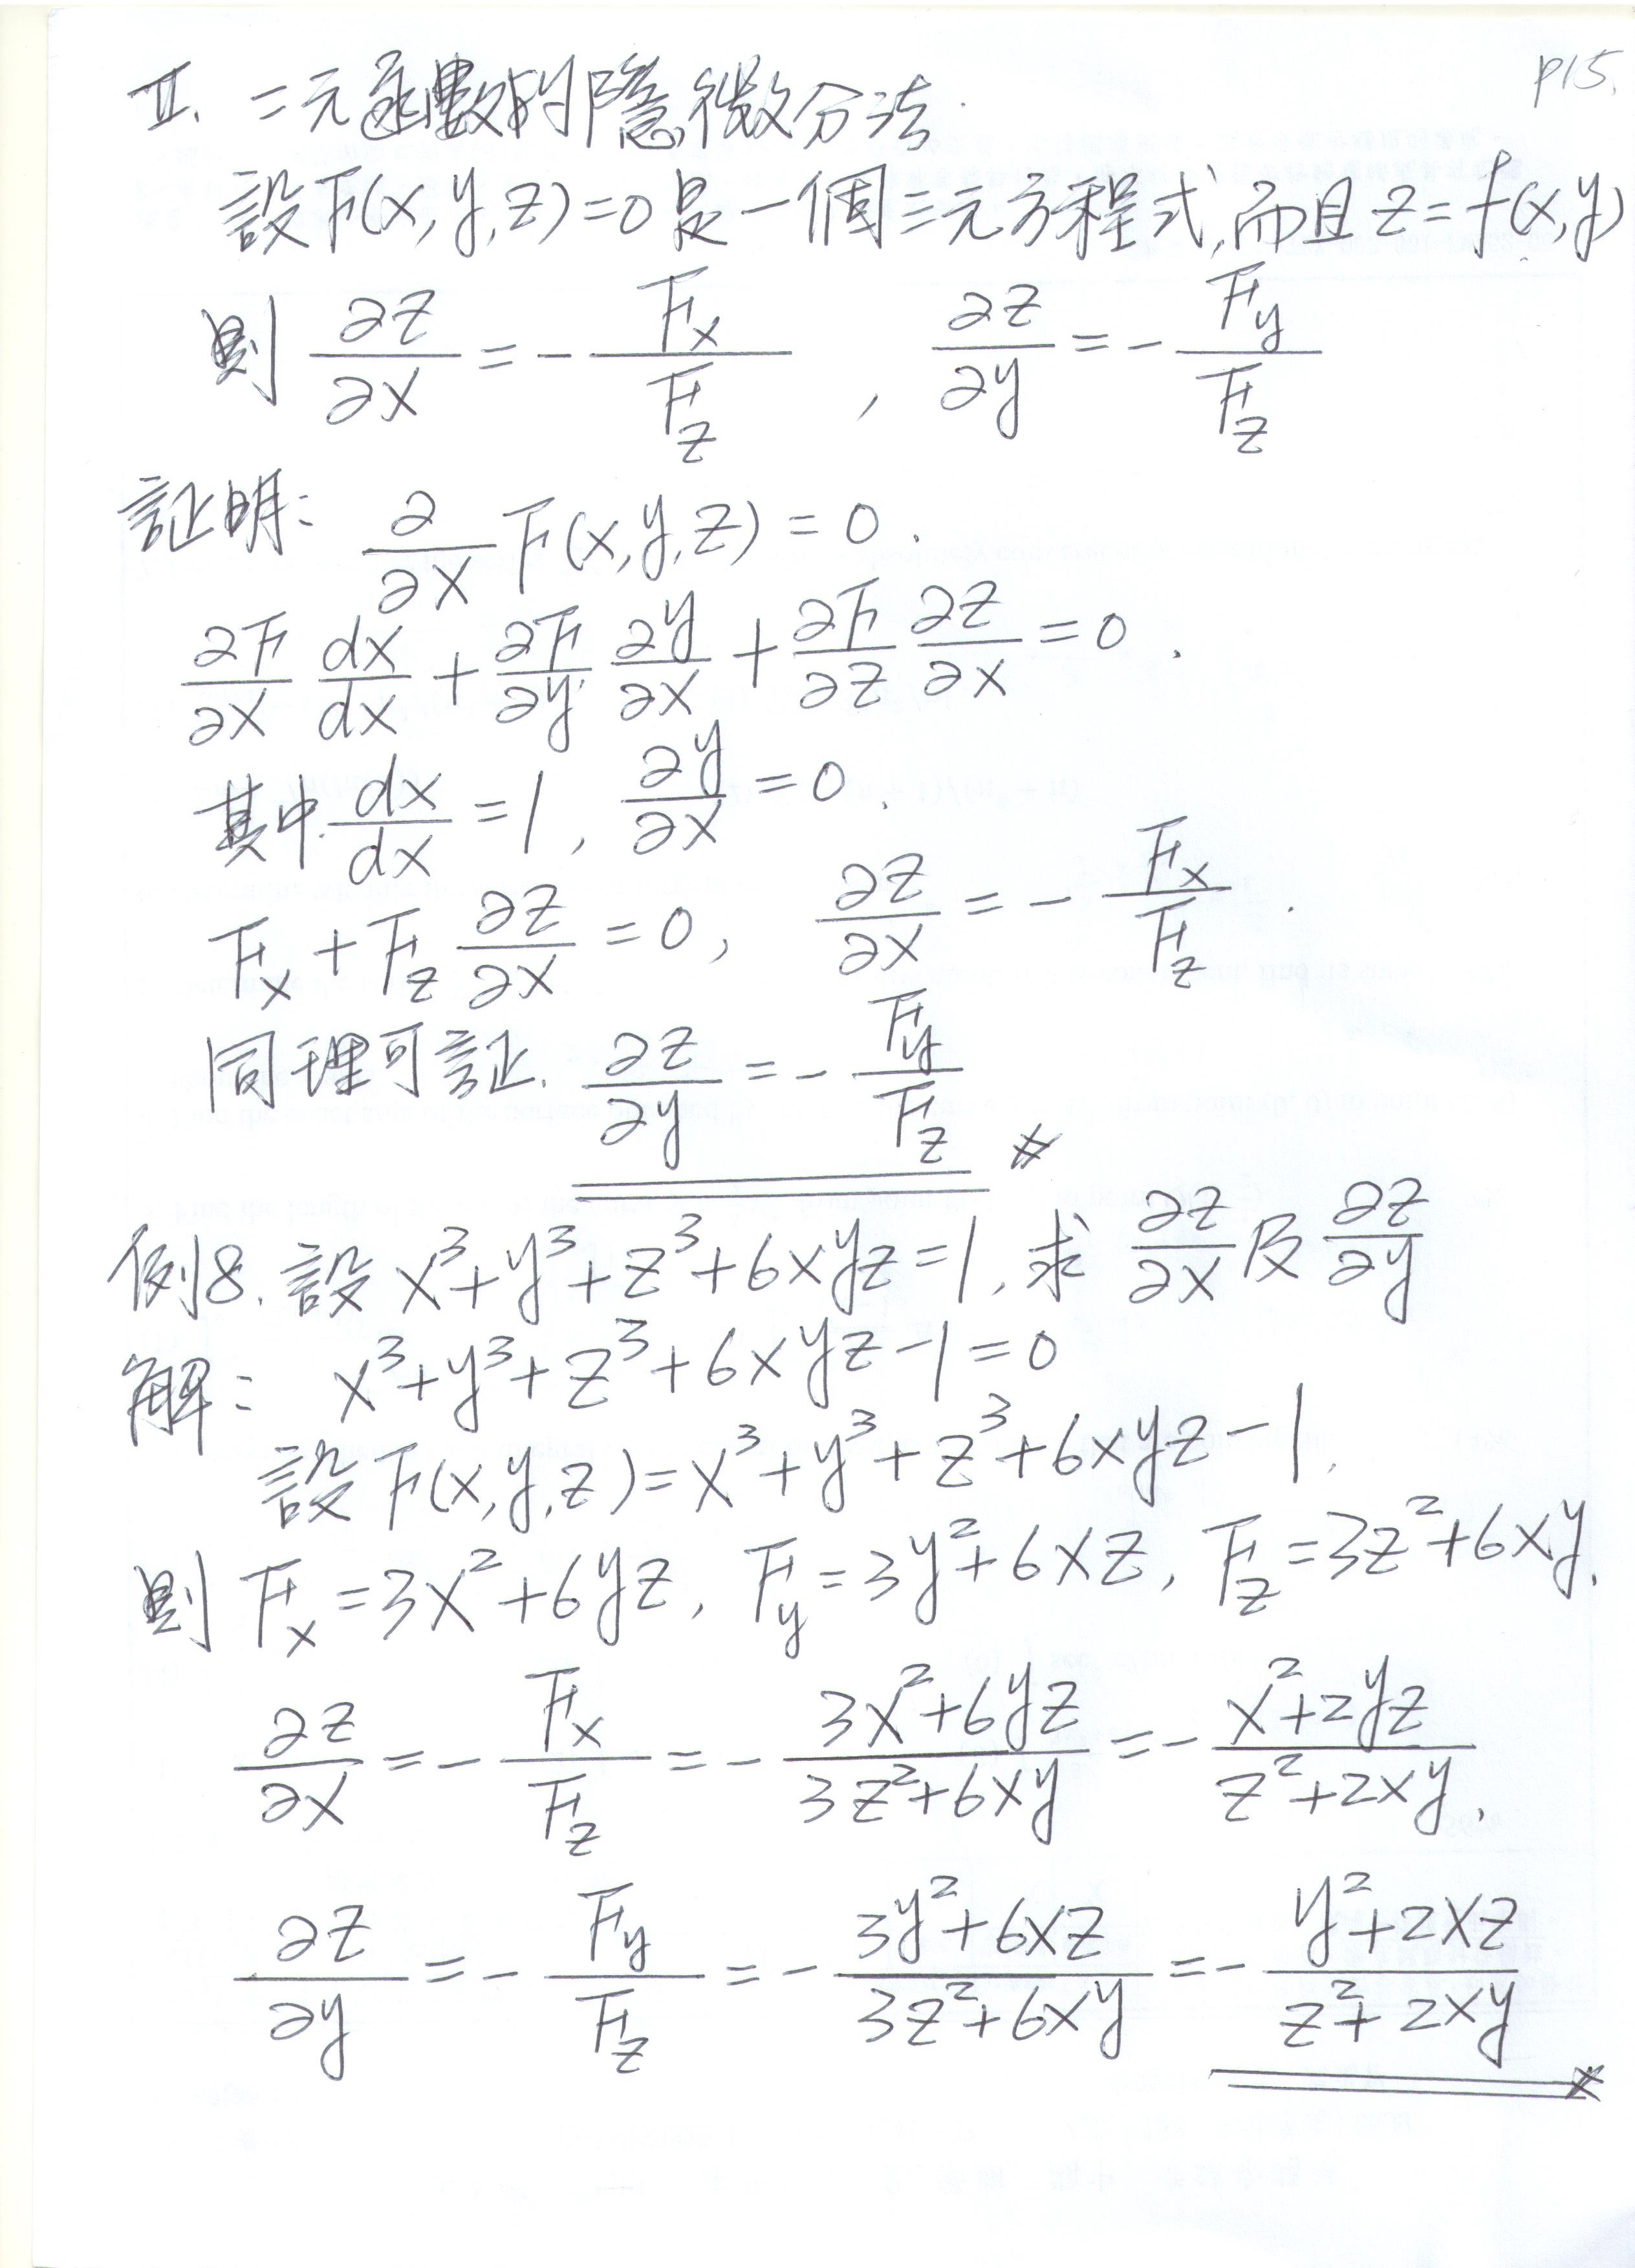 p15.
II. 二元函數的隱微分法.
設F(x,y,z)=0是一個三元方程式,而且z=f(x,y)
則 ∂z/∂x = - Fx/Fz , ∂z/∂y = - Fy/Fz
証明: ∂/∂x F(x,y,z) = 0.
∂F/∂x dx/dx + ∂F/∂y ∂y/∂x + ∂F/∂z ∂z/∂x = 0.
其中 dx/dx = 1, ∂y/∂x = 0.
Fx + Fz ∂z/∂x = 0, ∂z/∂x = - Fx/Fz.
同理可証. ∂z/∂y = - Fy/Fz #
例8. 設 x³+y³+z³+6xyz=1, 求 ∂z/∂x 及 ∂z/∂y
解: x³+y³+z³+6xyz-1=0
設 F(x,y,z)=x³+y³+z³+6xyz-1.
則 Fx=3x²+6yz, Fy=3y²+6xz, Fz=3z²+6xy.
∂z/∂x = - Fx/Fz = - (3x²+6yz)/(3z²+6xy) = - (x²+2yz)/(z²+2xy),
∂z/∂y = - Fy/Fz = - (3y²+6xz)/(3z²+6xy) = - (y²+2xz)/(z²+2xy) #